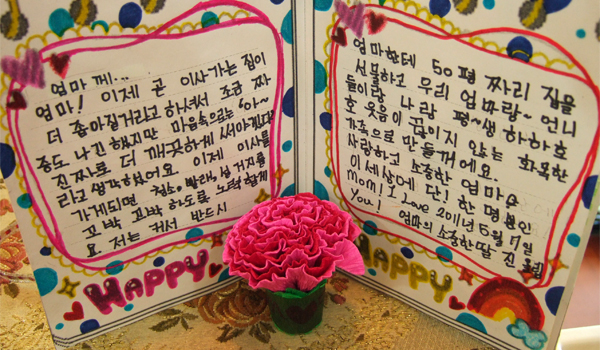 엄마 께...
엄마! 이제 곧 이사 가는 집이
더 좁아질거라고 하셔서 조금 짜
증도 나긴 했지만 마음속으로는 '아~
진짜로 더 깨끗하게 써야겠다'
라고 생각했어요. 이제 이사를
가게되면 청소나 빨래, 설거지를
꼬박 꼬박 하도록 노력 할게
요. 저는 커서 반드시
HAPPY
엄마한테 50평 짜리 집을
선물하고 우리 엄마랑~언니
들이랑 나랑 평~생 하하호
호 웃음이 끊이지 않는 화목한
가족으로 만들께에요.
사랑하고 소중한 엄마♡
이 세상에 단! 한 명뿐인
Mom! I Love
You!
2011년 5월 7일
엄마의 소중한 딸 진
HAPPY